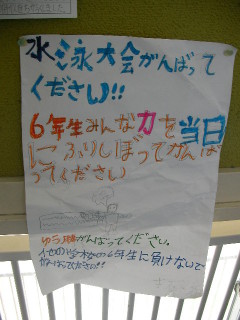 水泳大会がんばって
ください!!
6年生みんな力を当日
にふりしぼってがんば
ってください
ゆう勝がんばってください。
他の学校の6年生に負けないで
がんばってください!!